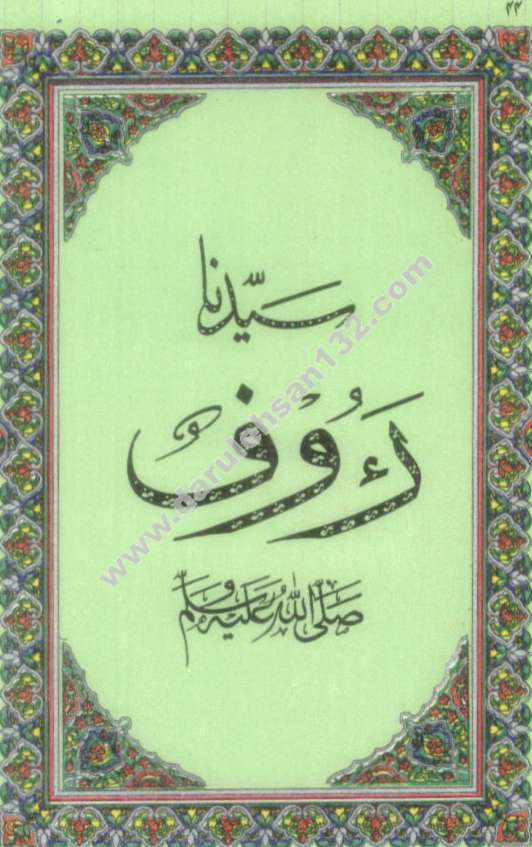 ۴۴
سَيِّدنا
رَءُوْفٌ
صَلَّى اللّٰهُ عَلَيْهِ وَسَلَّمَ
www.darulehsan132.com